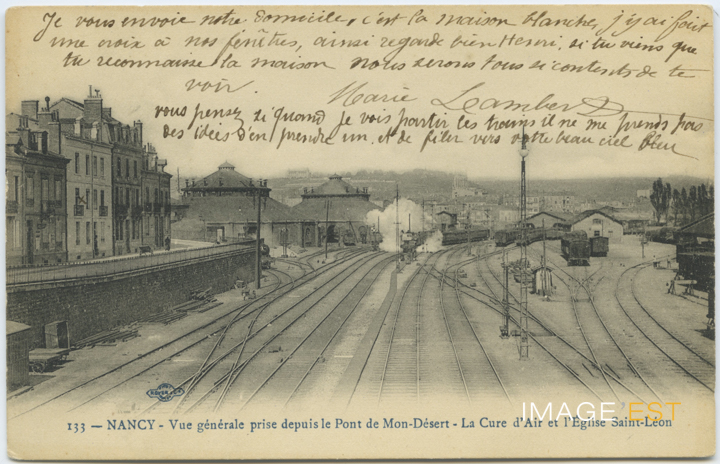 Je vous envoie notre domicile, c'est la maison blanche, j'y ai fait
une croix à nos fenêtres, ainsi regarde bien Henri, si tu viens que
tu reconnausse la maison nous serons tous si contents de te
voir. Marie Lambert
vous pensez si quand je vois partir les trains il ne me prends pas
des idées d'en prendre un et de filer vers votre beau ciel bleu
133 — NANCY - Vue générale prise depuis le Pont de Mon-Désert - La Cure d'Air et l'Eglise Saint-Léon
IMAGE EST